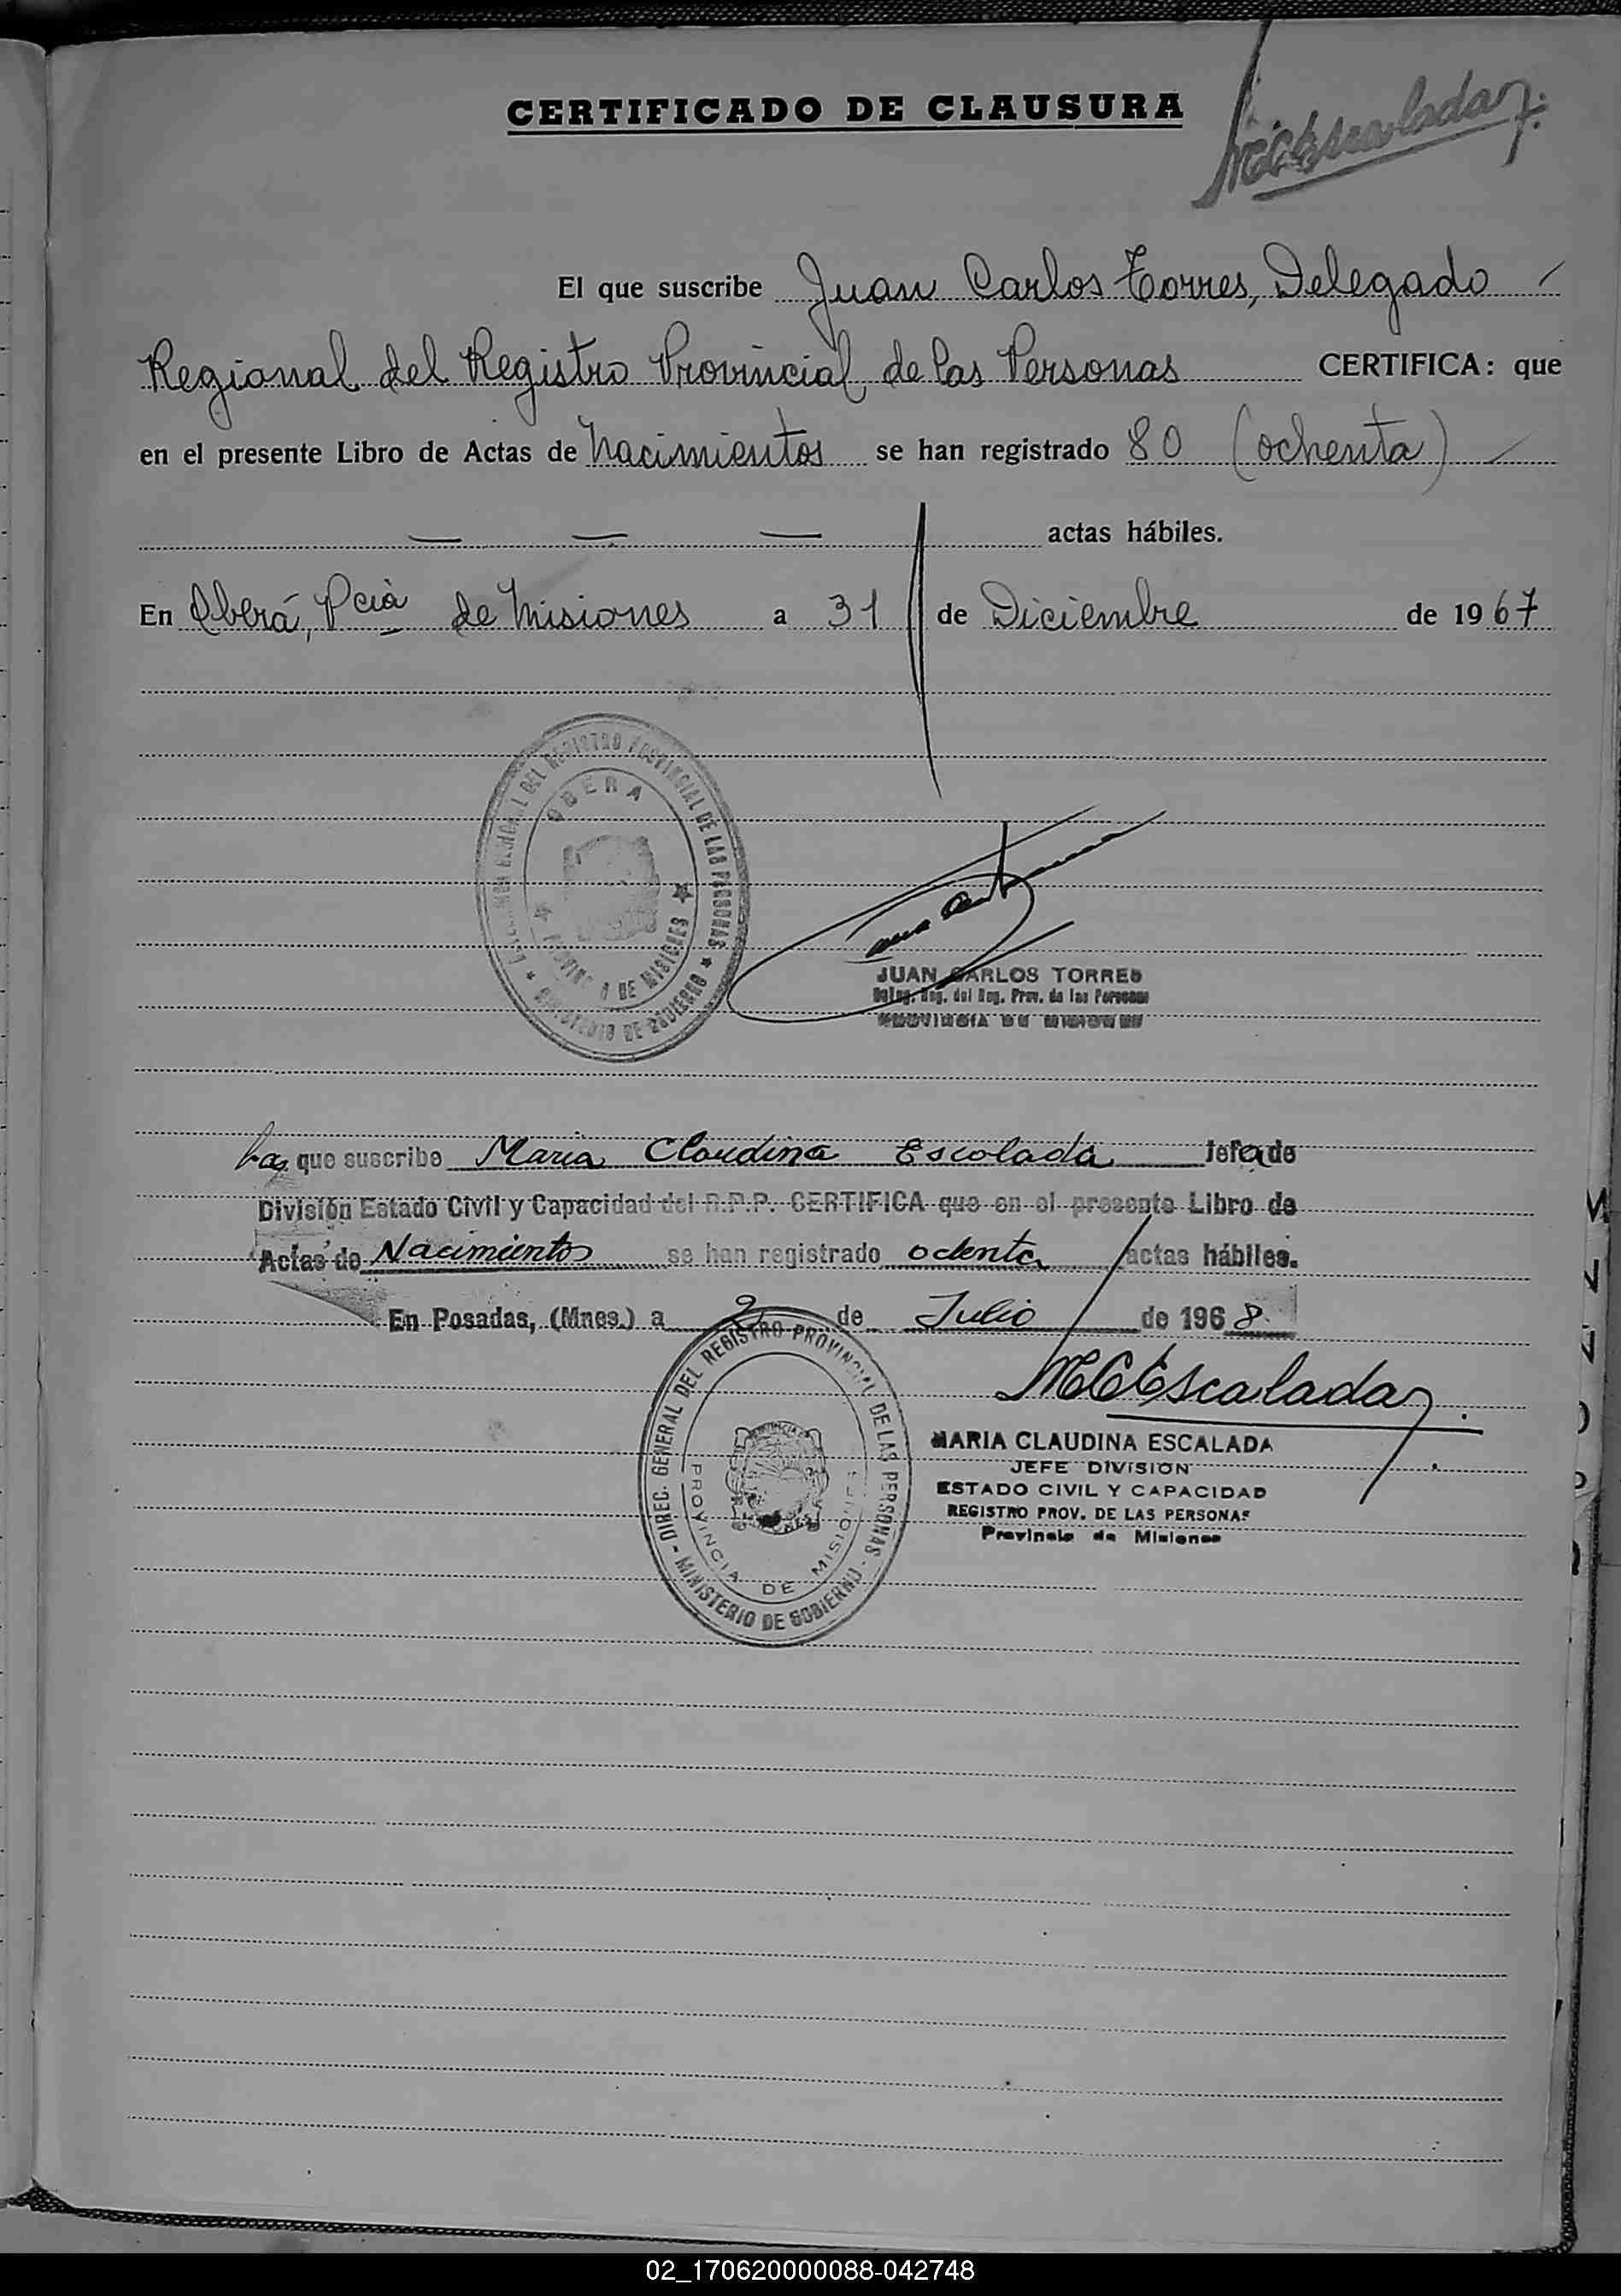 CERTIFICADO DE CLAUSURA
MCEscalada
El que suscribe Juan Carlos Torres, Delegado
Regional del Registro Provincial de las Personas CERTIFICA: que
en el presente Libro de Actas de Nacimientos se han registrado 80 (ochenta)
actas hábiles.
En Oberá, Pcia de Misiones a 31 de Diciembre de 1967
REGIONAL DEL REGISTRO PROVINCIAL DE LAS PERSONAS
OBERA
PROVINCIA DE MISIONES
MINISTERIO DE GOBIERNO
JUAN CARLOS TORRES
Deleg. Reg. del Reg. Prov. de las Personas
PROVINCIA DE MISIONES
La que suscribe Maria Claudina Escalada Jefa de
División Estado Civil y Capacidad del R.P.P. CERTIFICA que en el presente Libro de
Actas de Nacimientos se han registrado ochenta actas hábiles.
En Posadas, (Mnes.) a 2 de Julio de 1968.
DIREC. GENERAL DEL REGISTRO PROVINCIAL DE LAS PERSONAS - MINISTERIO DE GOBIERNO -
PROVINCIA DE MISIONES
MCEscalada
MARIA CLAUDINA ESCALADA
JEFE DIVISION
ESTADO CIVIL Y CAPACIDAD
REGISTRO PROV. DE LAS PERSONAS
Provincia de Misiones
02_170620000088-042748